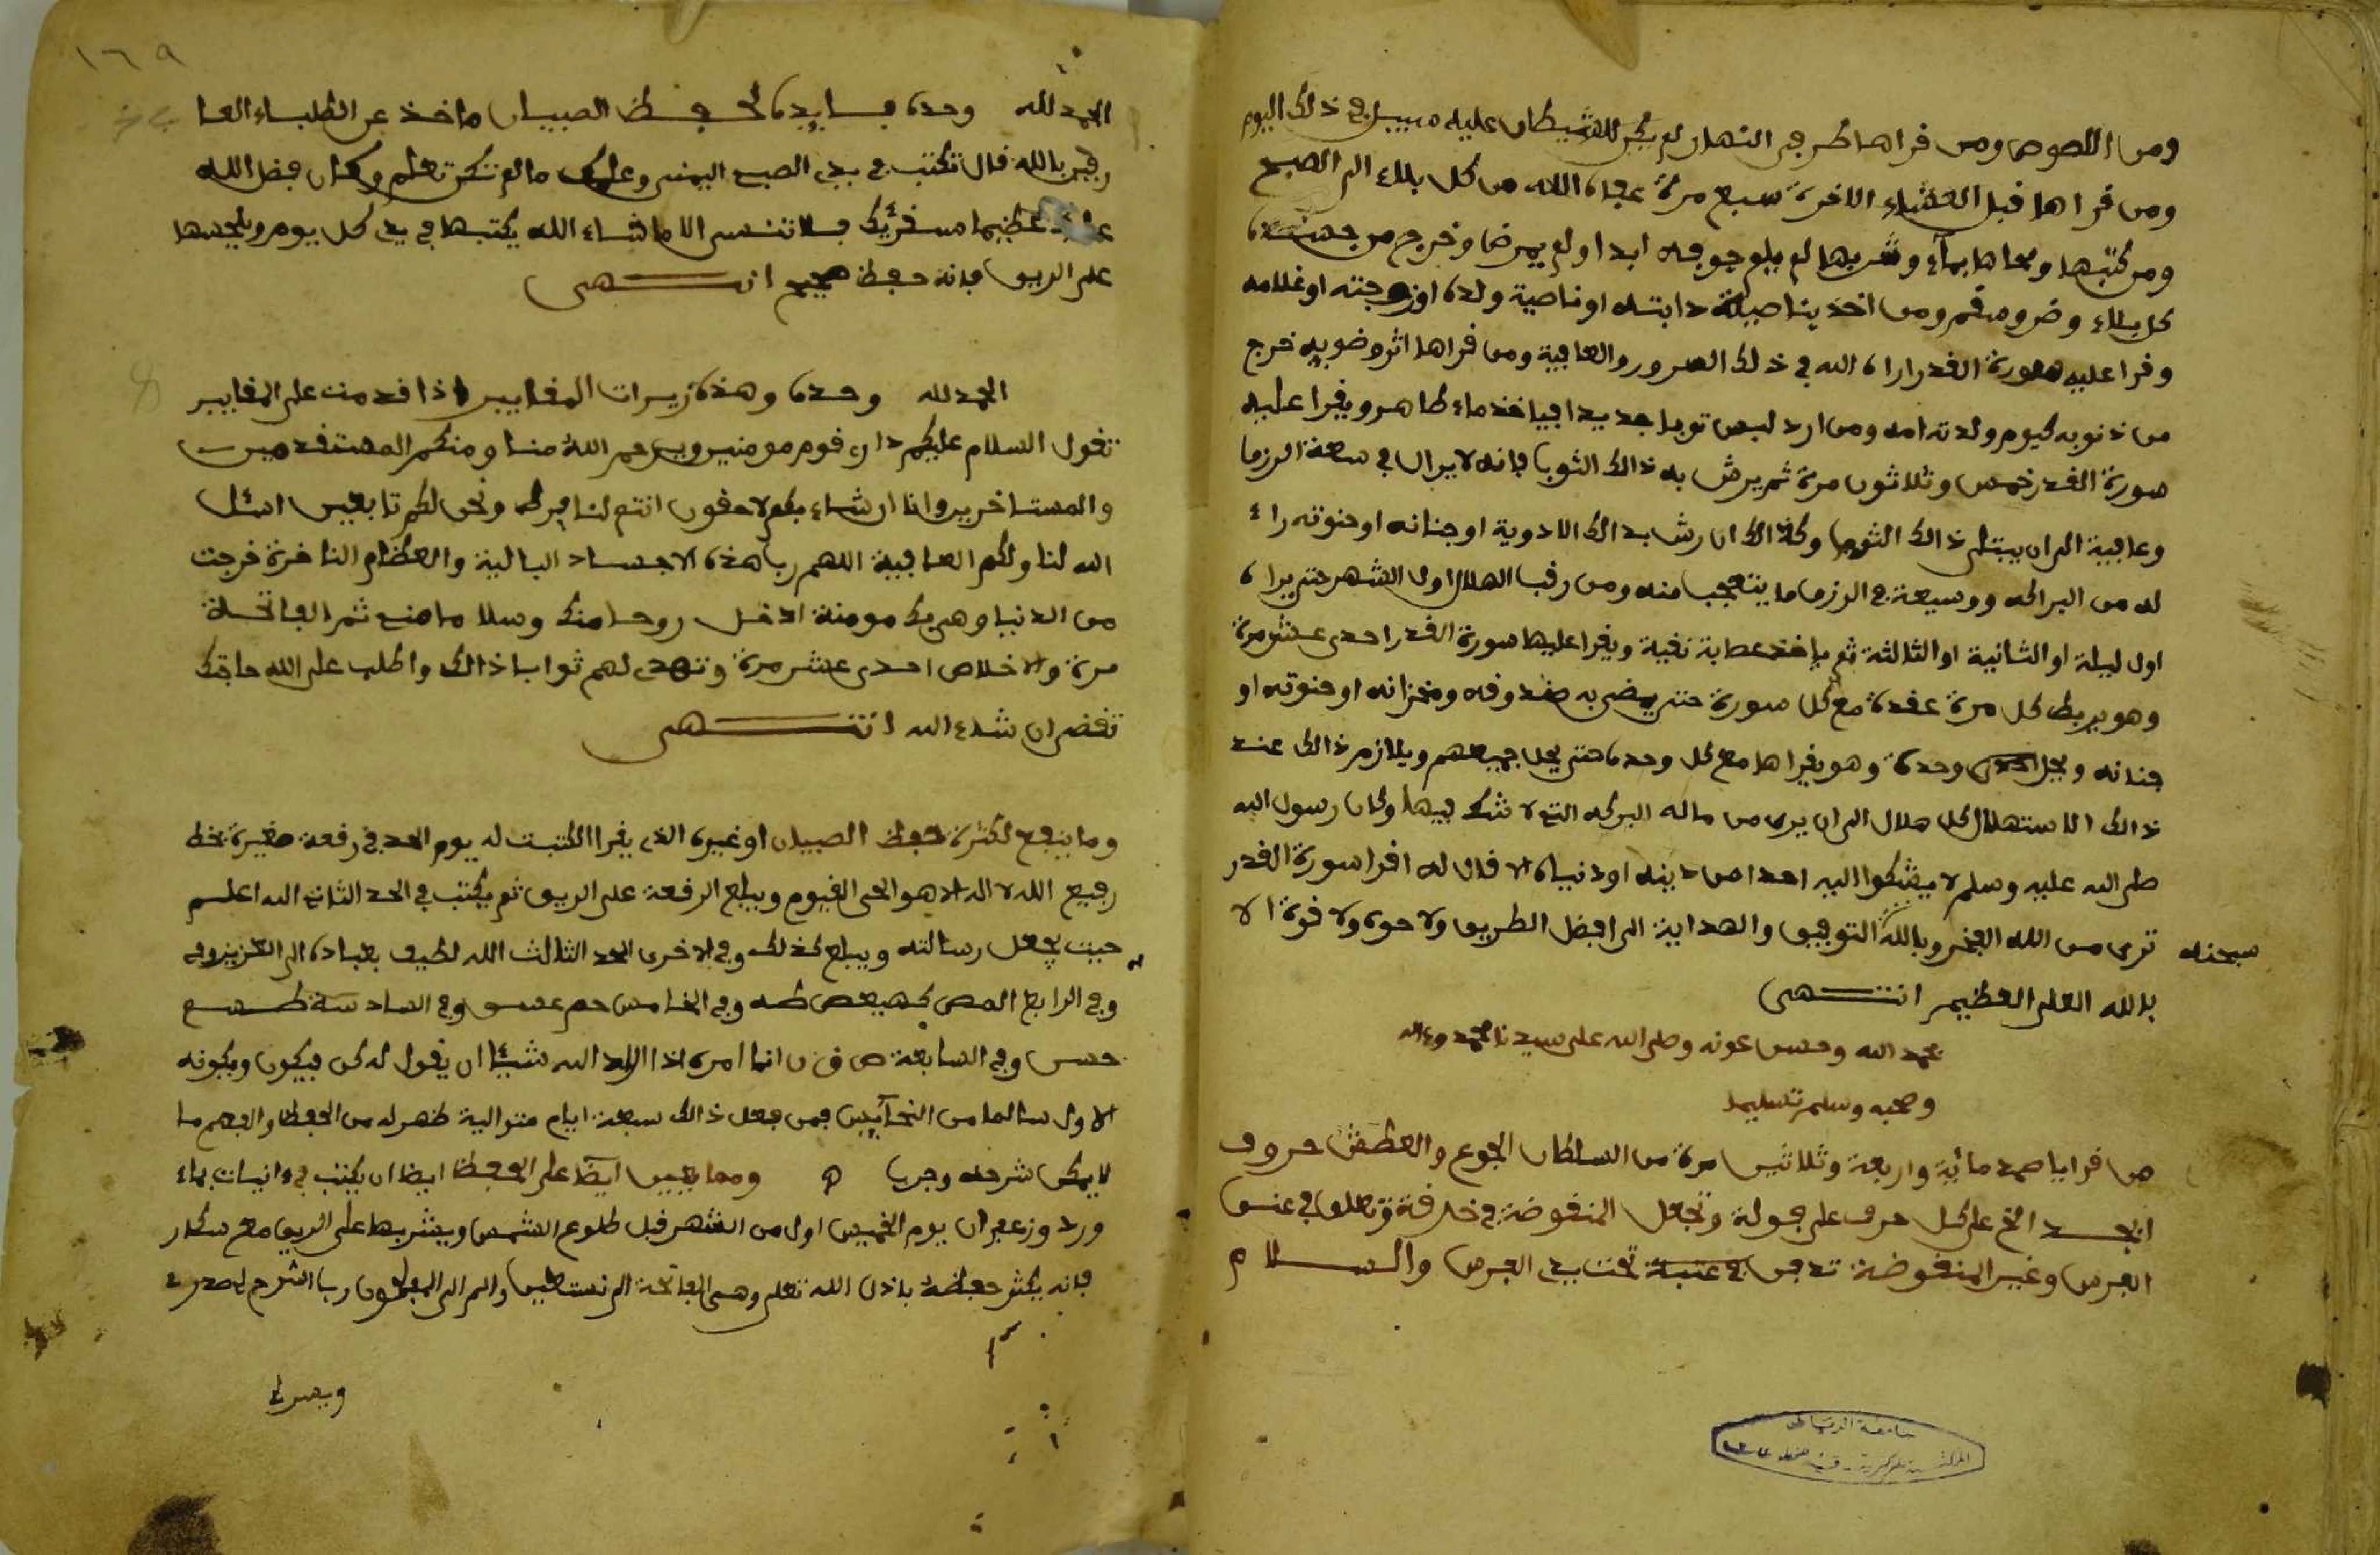 ومن اللصوص ومن فراها طرفي النهار لم يكن للشيطان عليه سبيل في ذلك اليوم
ومن فراها فبل العشاء الاخرة سبع مرة عافاه الله من كل بلاء الى الصبح
ومن كتبها ومحاها بماء وشربها لم يلج جوفه ابدا ولم يمرض وخرج من جسده
كل بلاء وضر وسقم ومن اخذ بناصية دابته او ناصية ولده او زوجته او غلامه
وفرا عليه سورة الفدر اراه الله في ذلك السرور والعافية ومن فراها اثر وضويه خرج
من ذنوبه كيوم ولدته امه ومن ارد لبس ثوبا جديدا فياخذ ماء طاهر ويفرا عليه
سورة الفدر خمس وثلاثون مرة ثم يرش به ذالك الثوب فانه لا يزال في سعة الرزق
وعافية الى ان يبتلى ذالك الثوب وكذالك ان رش بذالك الادوية او جنانه او حنوته راء
له من البراكة ووسيعة في الرزق ما يتعجب منه ومن رفب الهلال اول الشهر حتى يراه
اول ليلة او الثانية او الثالثة ثم ياخذ عصابة نفية ويفرا عليها سورة الفدر احدى عشر مرة
وهو يربط كل مرة عفدة مع كل سورة حتى يضرب به صندوفه ومخزانه او حنوته او
جنانه ويحل وحدة وهو يفراها مع كل وحدة حتى يحل جميعهم ويلازم ذالك عند
ذالك الاستهلال كل هلال الى ان يرى من ماله البركة التي لا شك فيها وكان رسول الله
صلى الله عليه وسلم لا يشكوا اليه احدا من دينه او دنياه الا فال له افرا سورة الفدر
سبحنه ترى من الله الفجر وبالله التوفيق والهداية الى افضل الطريق ولا حول ولا فوة الا
بالله العلي العظيم انتهى
بحمد الله وحسن عونه وصلى الله على سيدنا محمد وءاله
وصحبه وسلم تسليما
من فرا يا صمد مائية واربعة وثلاثين مرة من السلطان الجوع والعطش حروف
ابجد الخ على كل حرف على فولة وتجعل المنفوضة في خرفة وتعلق في عنق
الفرس وغير المنفوضة تدفن في عتبة تحت يدي الفرس والسلام
جامعة الرياض
١٦٩
الحمد لله وحده فايدة لحفظ الصبيان ماخذ عن الطلباء العا
رفين بالله فال تكتب في يدي الصبي اليمنى وعلمك ما لم تكن تعلم وكان فضل الله
عليك عظيما سنفريك فلا تنسى الا ما شاء الله يكتبها في يدي كل يوم ويلحسها
على الريق فانه حفظ صحيح انتهى
الحمد لله وحده وهذه زيرات المفابير اذا فدمت على المفابير
تفول السلام عليكم دار فوم مومنين ويرحم الله منا ومنكم المستفدمين
والمستاخرين وانا ان شاء بكم لاحفون انتم لنا فرط ونحن لكم تابعين اسئل
الله لنا ولكم العافية اللهم رب هذه الاجساد البالية والعظام الناخرة خرجت
من الدنيا وهي بك مومنة ادخل روحا منك وسلاما مني ثم الفاتحة
مرة والاخلاص احدى عشر مرة وتهدى لهم ثواب ذالك واطلب على الله حاجتك
تفضى ان شاء الله انتهى
وما ينفع لكثرة حفظ الصبيان او غيره الذي يفرا اكتبت له يوم الحد في رفعة صغيرة بخط
رفيع الله لا اله الا هو الحي الفيوم ويبلع الرفعة على الريق ثم يكتب في الحد الثاني الله اعلم
حيث يجعل رسالته ويبلع كذلك وفي الاخرى الحد الثالث الله لطيف بعباده الى العزيز
وفي الرابع المص كهيعص طه وفي الخامس حم عسق وفي السادسة طسم
وفي السابعة ص ق ن انما امره اذا اراد الله شيئا ان يفول له كن فيكون ويكونه
الاول سالما من النحايس فمن فعل ذالك سبعة ايام متوالية ظهر له من الحفظ والفهم ما
لا يمكن شرحه وجرب ومما يعين ايضا على الحفظ ايضا ان يكتب في انيات بماء
ورد وزعفران يوم الخميس اول من الشهر فبل طلوع الشمس ويشربها على الريق مع سكار
فانه يكثر حفظه باذن الله تعلى وهى الفاتحة الى نستعين والم الى المفلحون رب اشرح لي صدري
ويسر لي